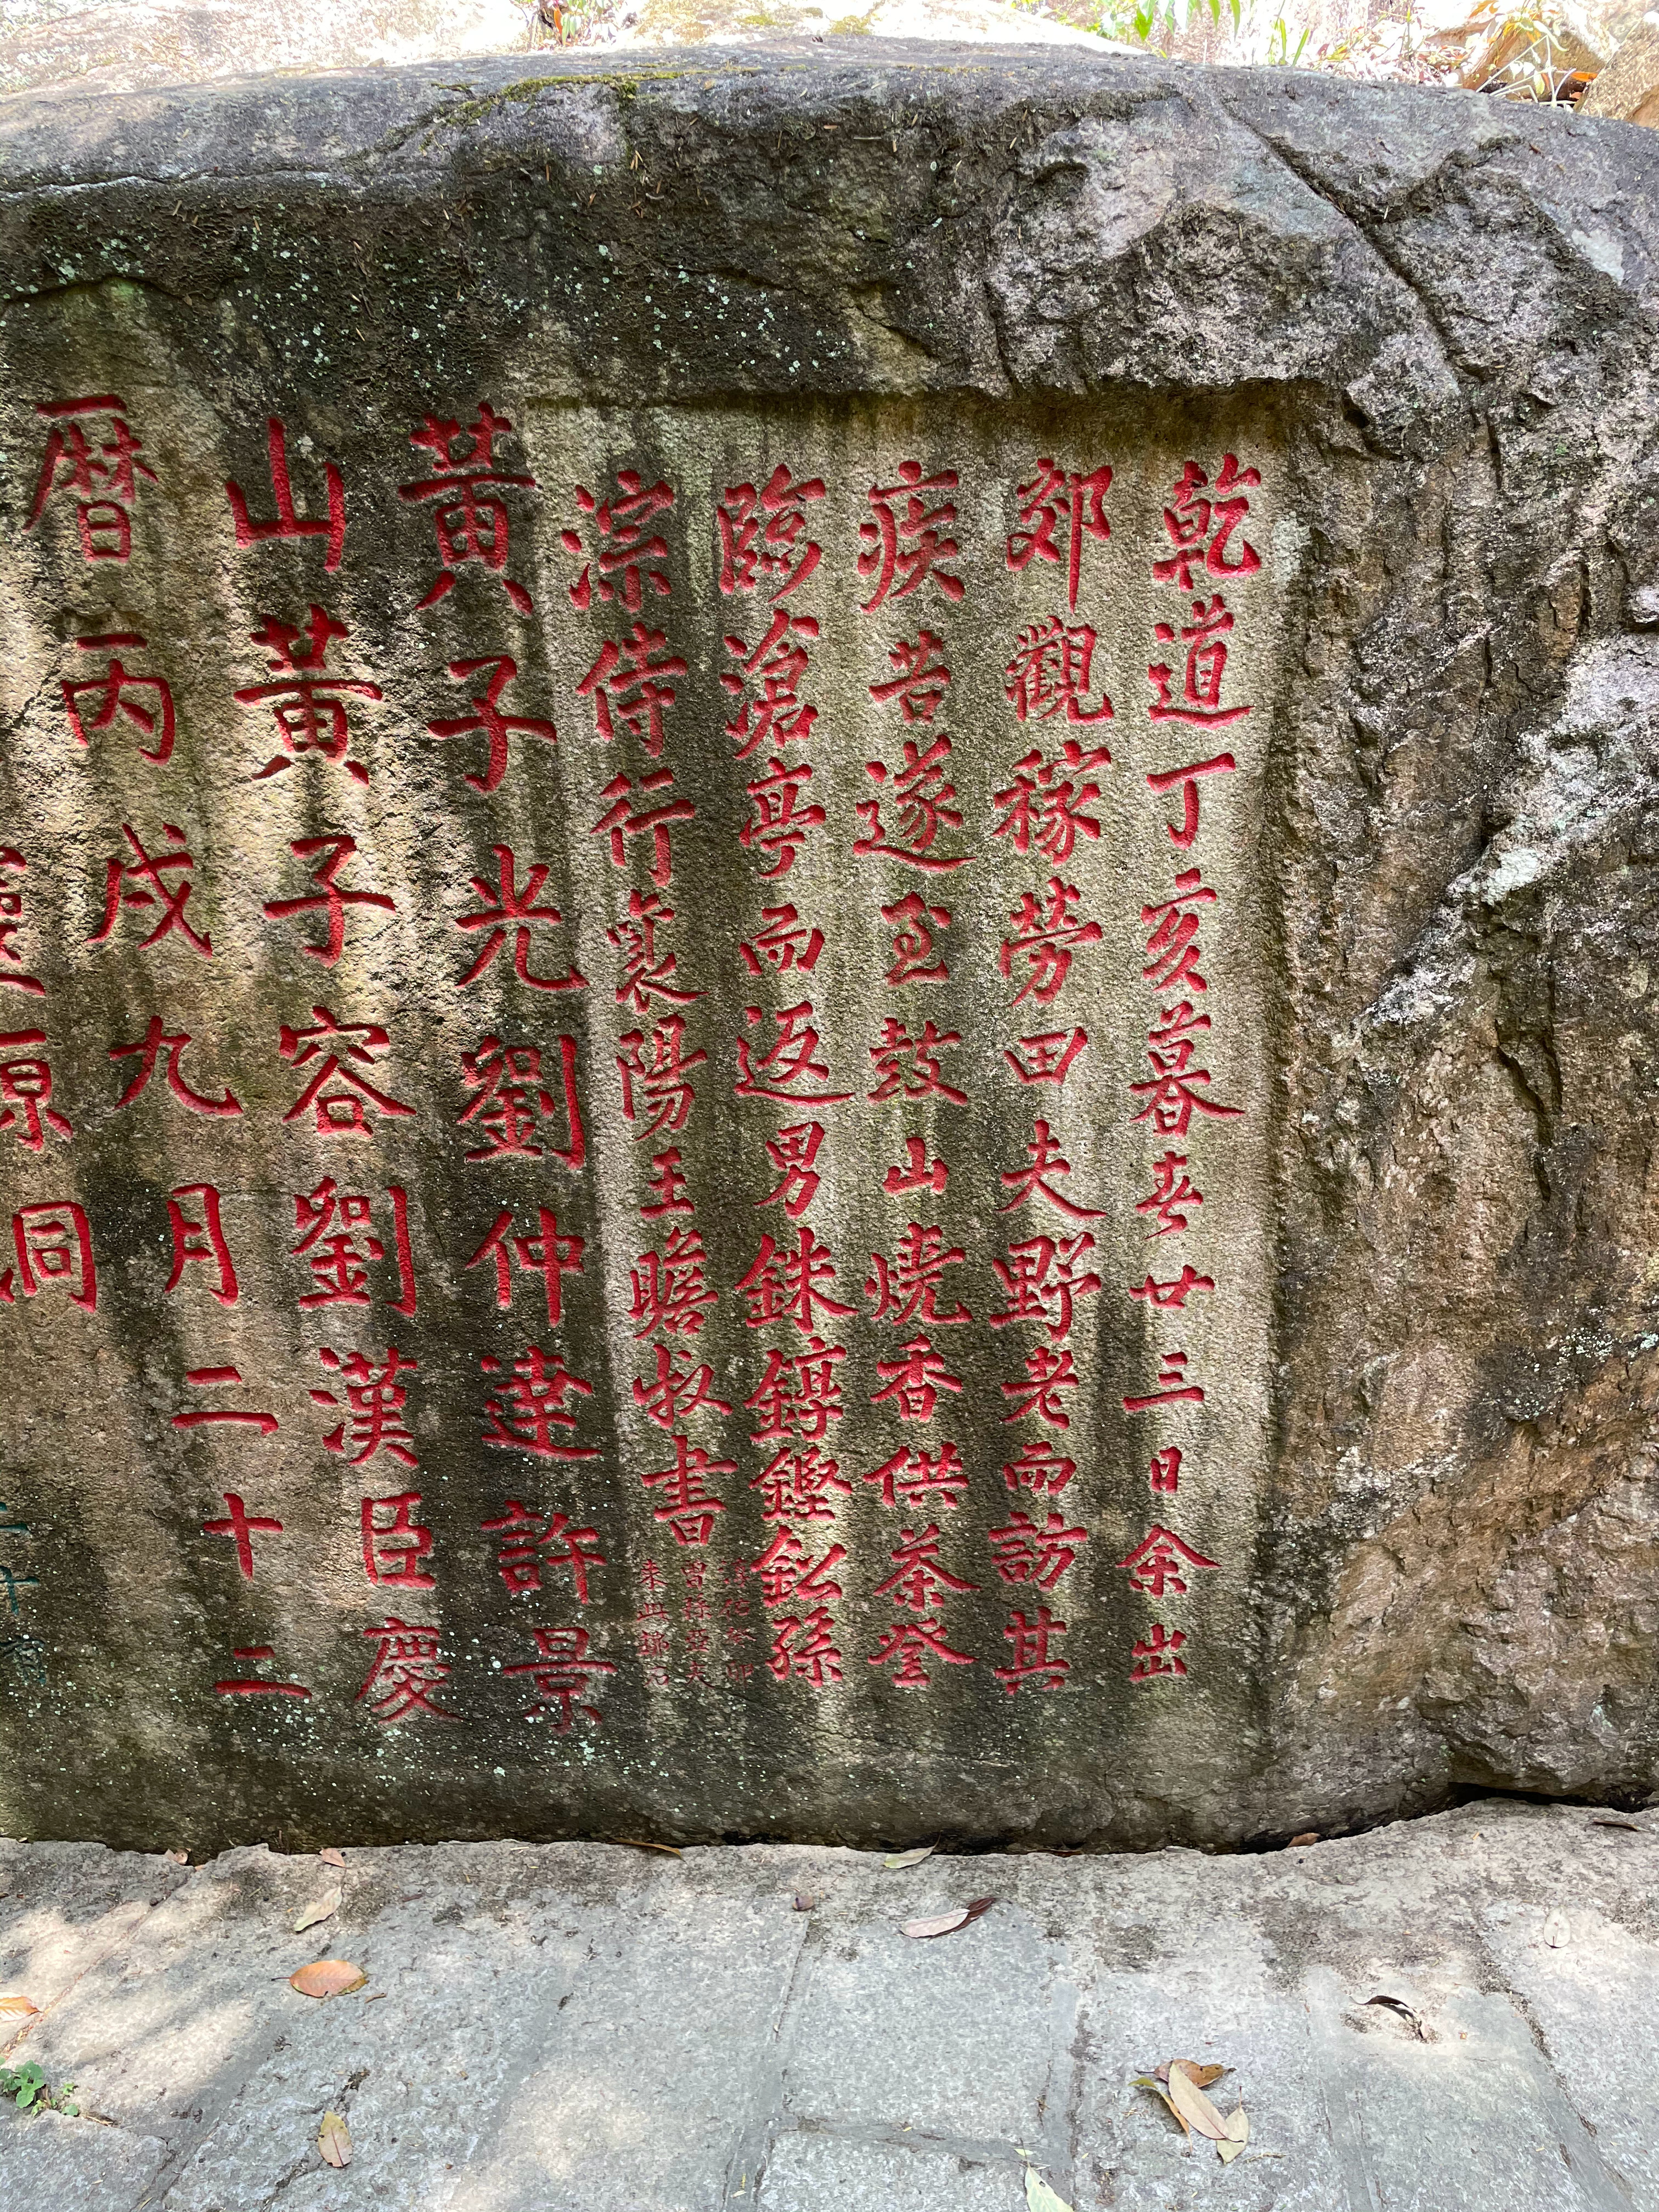 乾道丁亥暮春廿三日余出
郊觀稼勞田夫野老而訪其
疾苦遂至鼓山燒香供茶登
臨滄亭而返男銖錞鏗鈆孫
淙侍行襄陽王瞻叔書
淳祐癸卯
曾孫亞夫
黃子光劉仲達許景
山黃子容劉漢臣慶
曆丙戌九月二十二
靈源洞